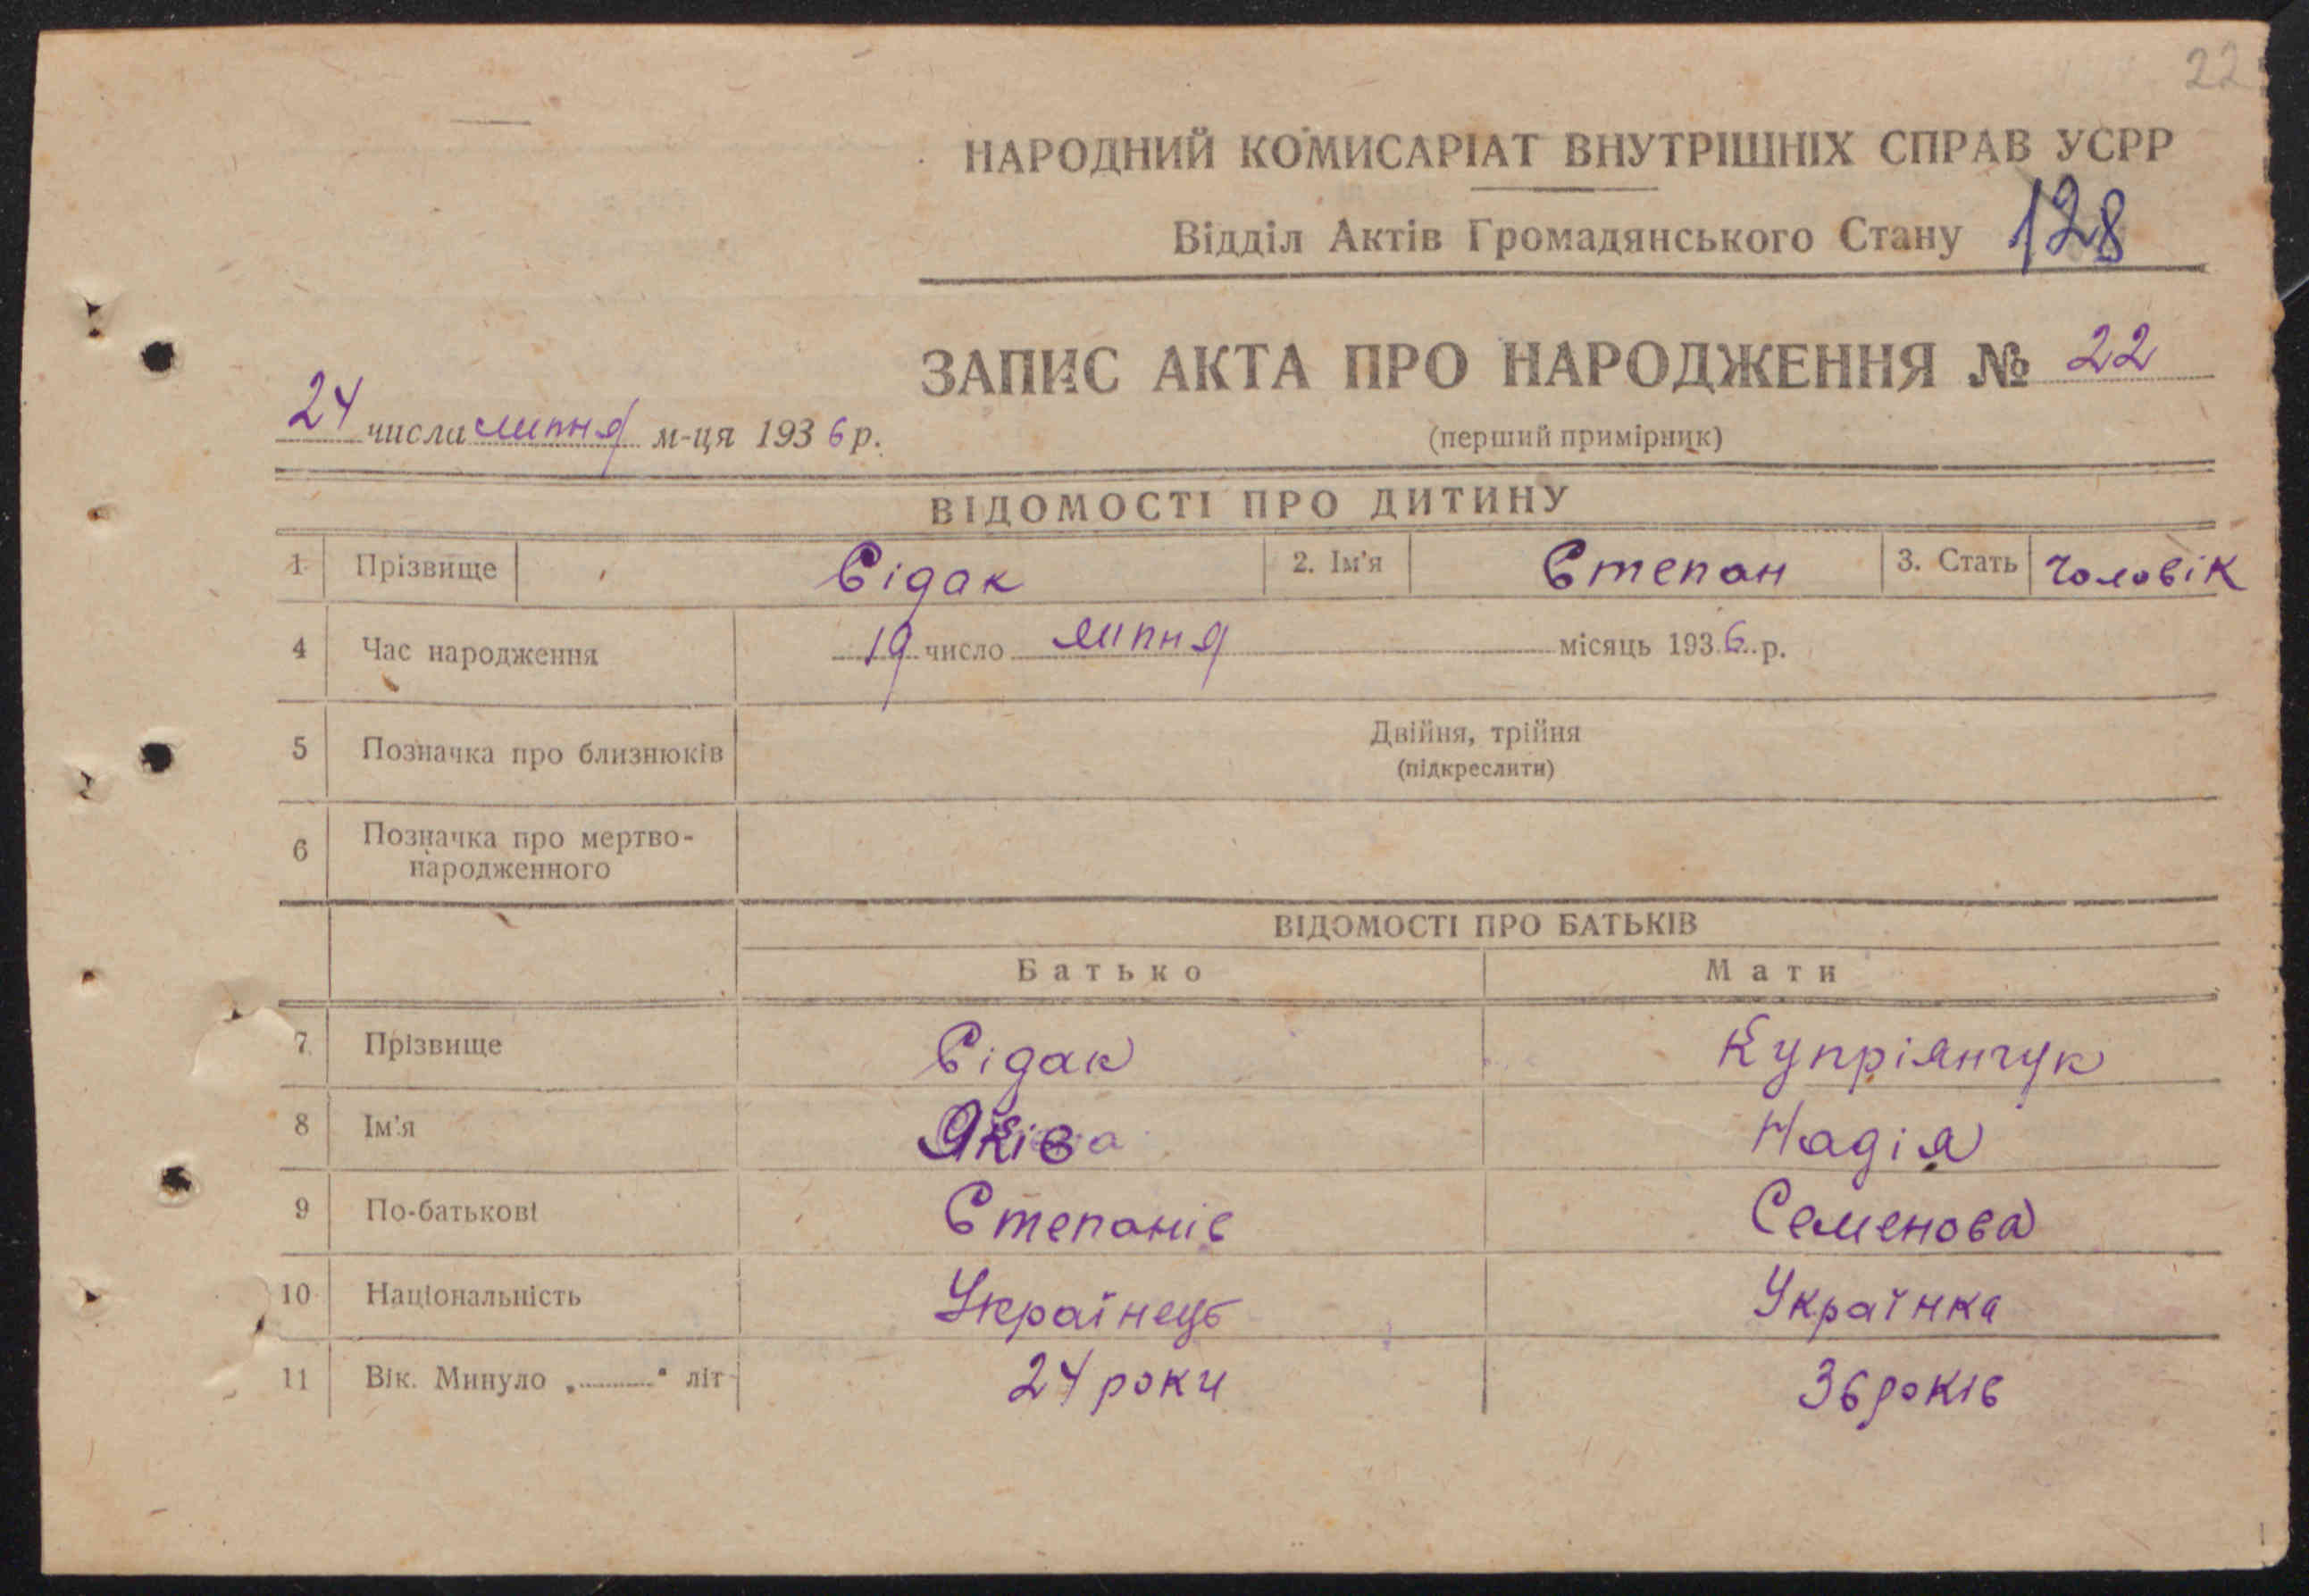 22
НАРОДНИЙ КОМИСАРІАТ ВНУТРІШНІХ СПРАВ УСРР
Відділ Актів Громадянського Стану 128
ЗАПИС АКТА ПРО НАРОДЖЕННЯ № 22
24 числа липня м-ця 1936 р.
(перший примірник)
ВІДОМОСТІ ПРО ДИТИНУ
1 Прізвище Сідак 2. Ім'я Степан 3. Стать Чоловік
4 Час народження 19 число липня місяць 1936 р.
5 Позначка про близнюків Двійня, трійня
(підкреслити)
6 Позначка про мертво-
народженного
ВІДОМОСТІ ПРО БАТЬКІВ
Батько Мати
7 Прізвище Сідак Купріянчук
8 Ім'я Яків Надія
9 По-батькові Степанів Семенова
10 Національність Українець Українка
11 Вік. Минуло „ " літ 24 роки 36 років